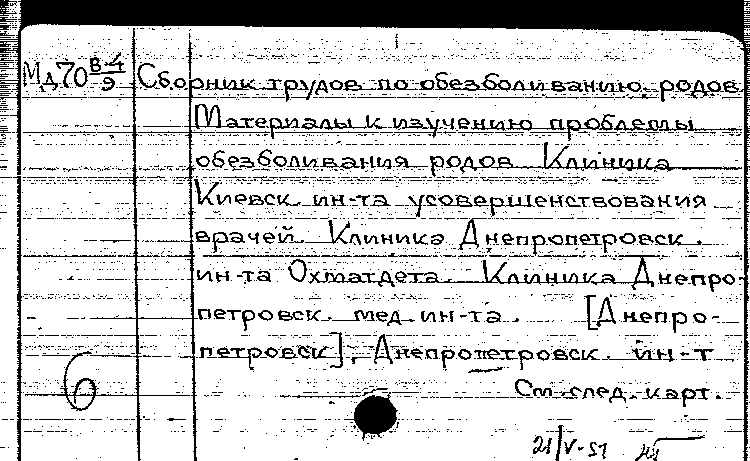 Мд70 В-4/9 Сборник трудов по обезболиванию родов
Материалы к изучению проблемы
обезболивания родов Клиника
Киевск. ин-та усовершенствования
врачей. Клиника Днепропетровск.
ин-та Охматдета. Клиника Днепро-
петровск. мед. ин-та. [Днепро-
петровск], Днепропетровск. ин-т
См. след. карт.
6
21/V-51